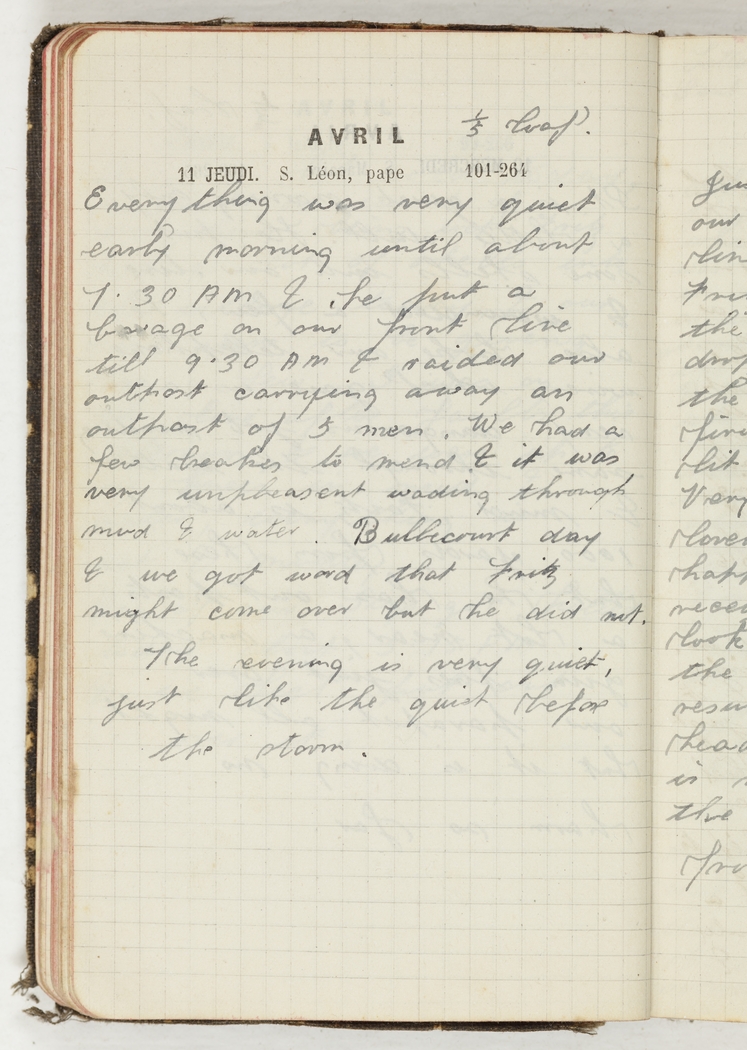 AVRIL 1/5 loaf.
11 JEUDI. S. Léon, pape 101-264
Everything was very quiet
early morning until about
7.30 AM & he put a
barage on our front line
till 9.30 AM & raided our
outpost carrying away an
outpost of 5 men. We had a
few breakes to mend & it was
very unpleasent wading through
mud & water. Bullecourt day
& we got word that Fritz
might come over but he did not.
The evening is very quiet,
just like the quiet before
the storm.
our
the
the
Very
the
is
the